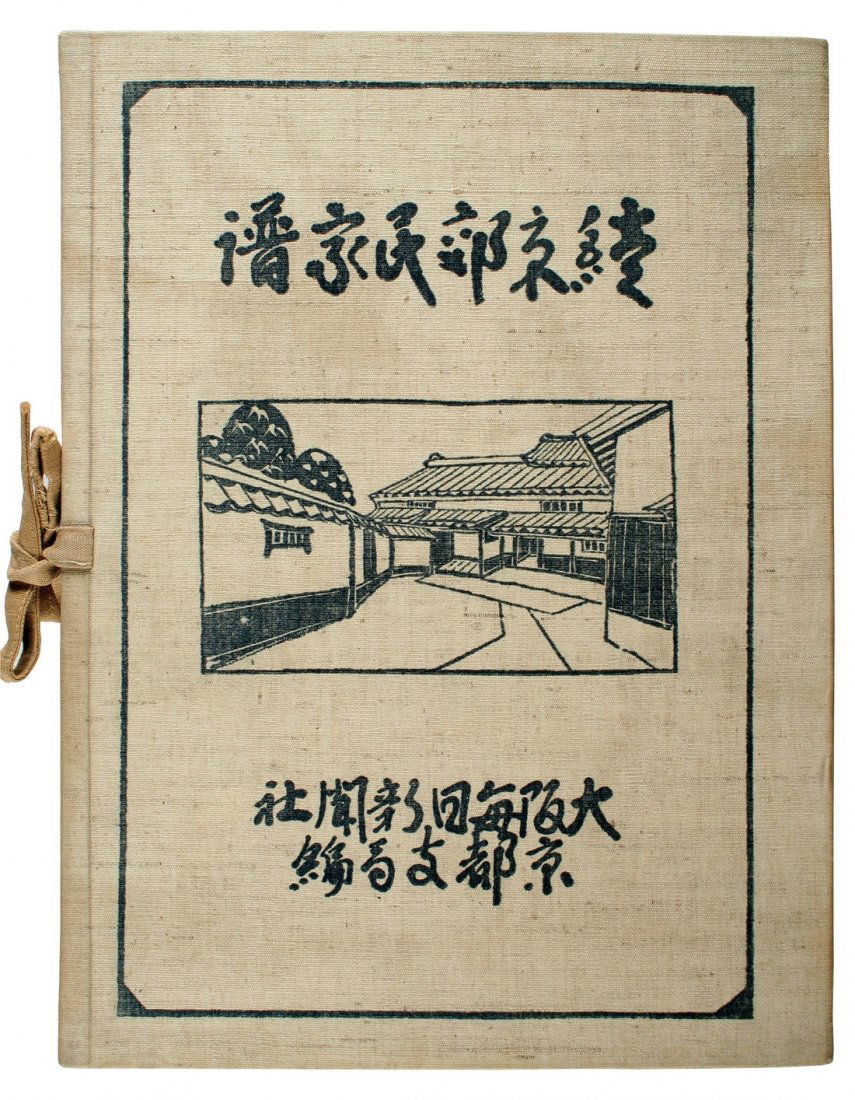 續京郊民家譜
大阪毎日新聞社
京都支局編